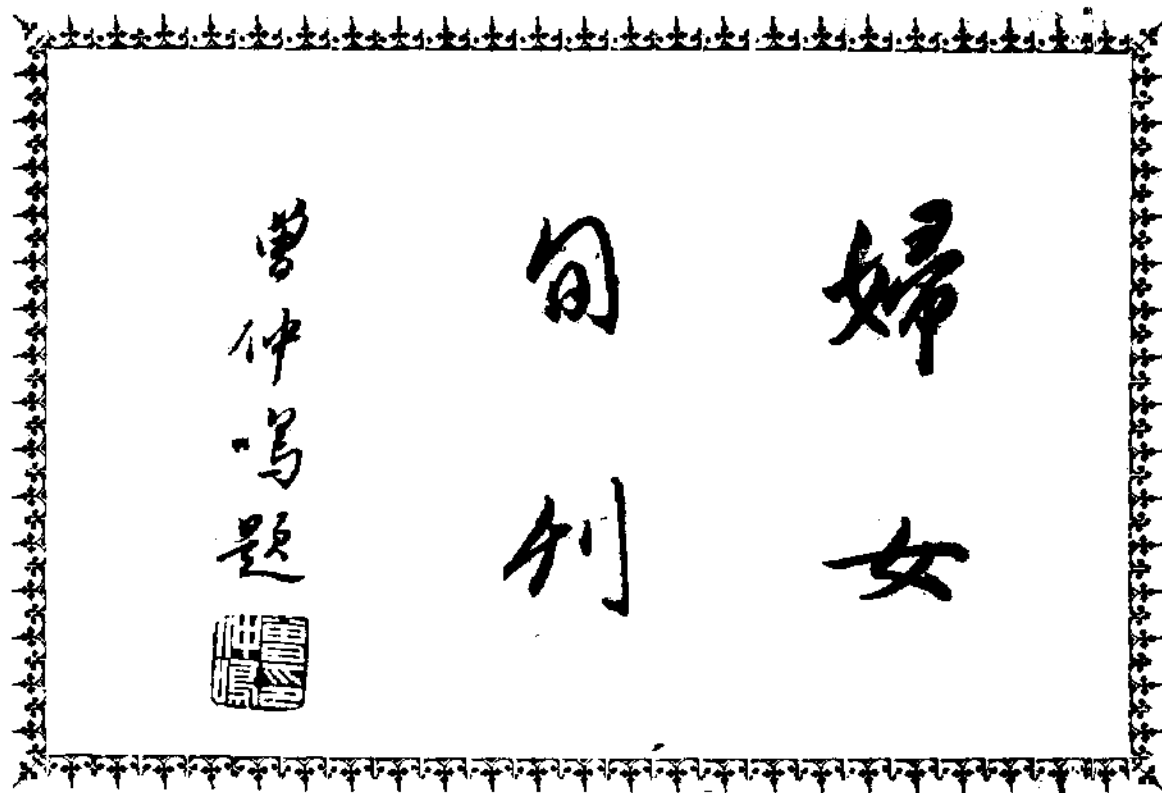 婦女
旬刊
曾仲鳴題
曾仲鳴印